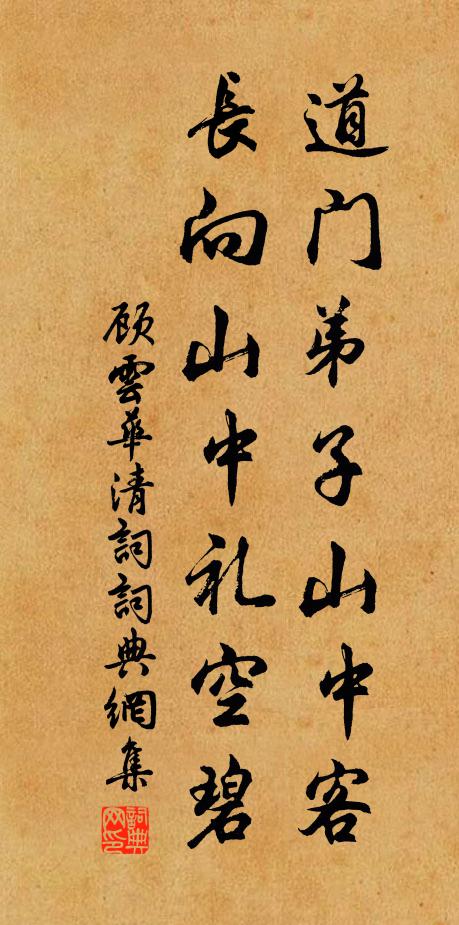 道门弟子山中客
長向山中礼空碧
顾雲華清詞詞典網集
詞典网印